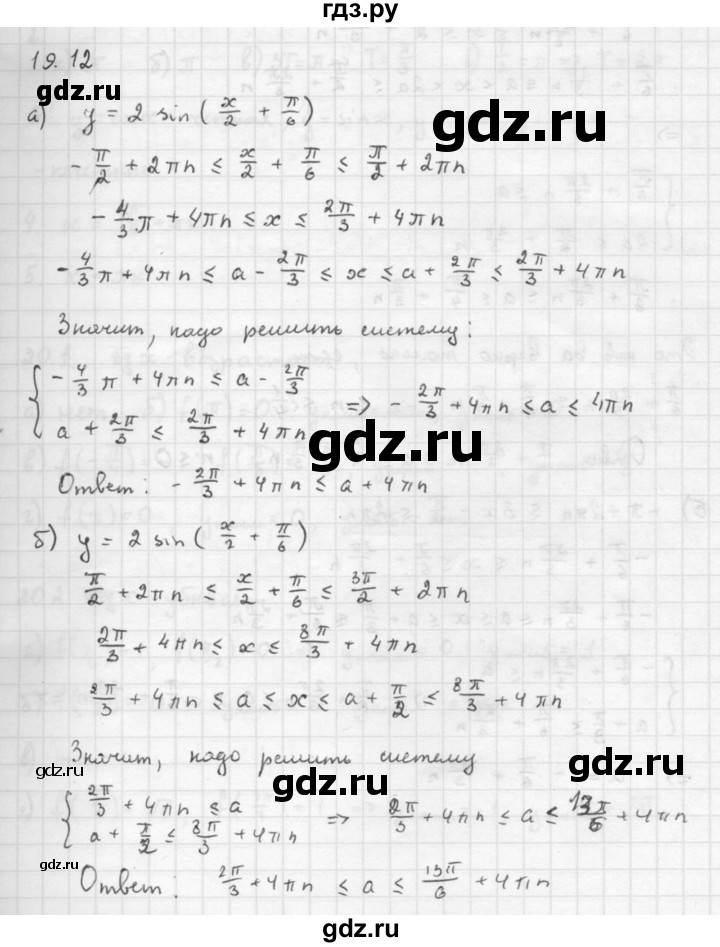 гдз.ру
19.12
gdz.ru
а) y = 2 sin(x/2 + π/6)
-π/2 + 2πn ≤ x/2 + π/6 ≤ π/2 + 2πn
-4/3 π + 4πn ≤ x ≤ 2π/3 + 4πn
-4/3 π + 4πn ≤ a - 2π/3 ≤ x ≤ a + 2π/3 ≤ 2π/3 + 4πn
Значит, надо решить систему:
{ -4/3 π + 4πn ≤ a - 2π/3
a + 2π/3 ≤ 2π/3 + 4πn => -2π/3 + 4πn ≤ a ≤ 4πn
gdz.ru
Ответ: -2π/3 + 4πn ≤ a + 4πn
gdz.ru
б) y = 2 sin(x/2 + π/6)
π/2 + 2πn ≤ x/2 + π/6 ≤ 3π/2 + 2πn
2π/3 + 4πn ≤ x ≤ 8π/3 + 4πn
2π/3 + 4πn ≤ a ≤ x ≤ a + π/2 ≤ 8π/3 + 4πn
Значит, надо решить систему
gdz.ru
gdz.ru
{ 2π/3 + 4πn ≤ a
a + π/2 ≤ 8π/3 + 4πn => 2π/3 + 4πn ≤ a ≤ 13π/6 + 4πn
Ответ: 2π/3 + 4πn ≤ a ≤ 13π/6 + 4πn
gdz.ru
gdz.ru